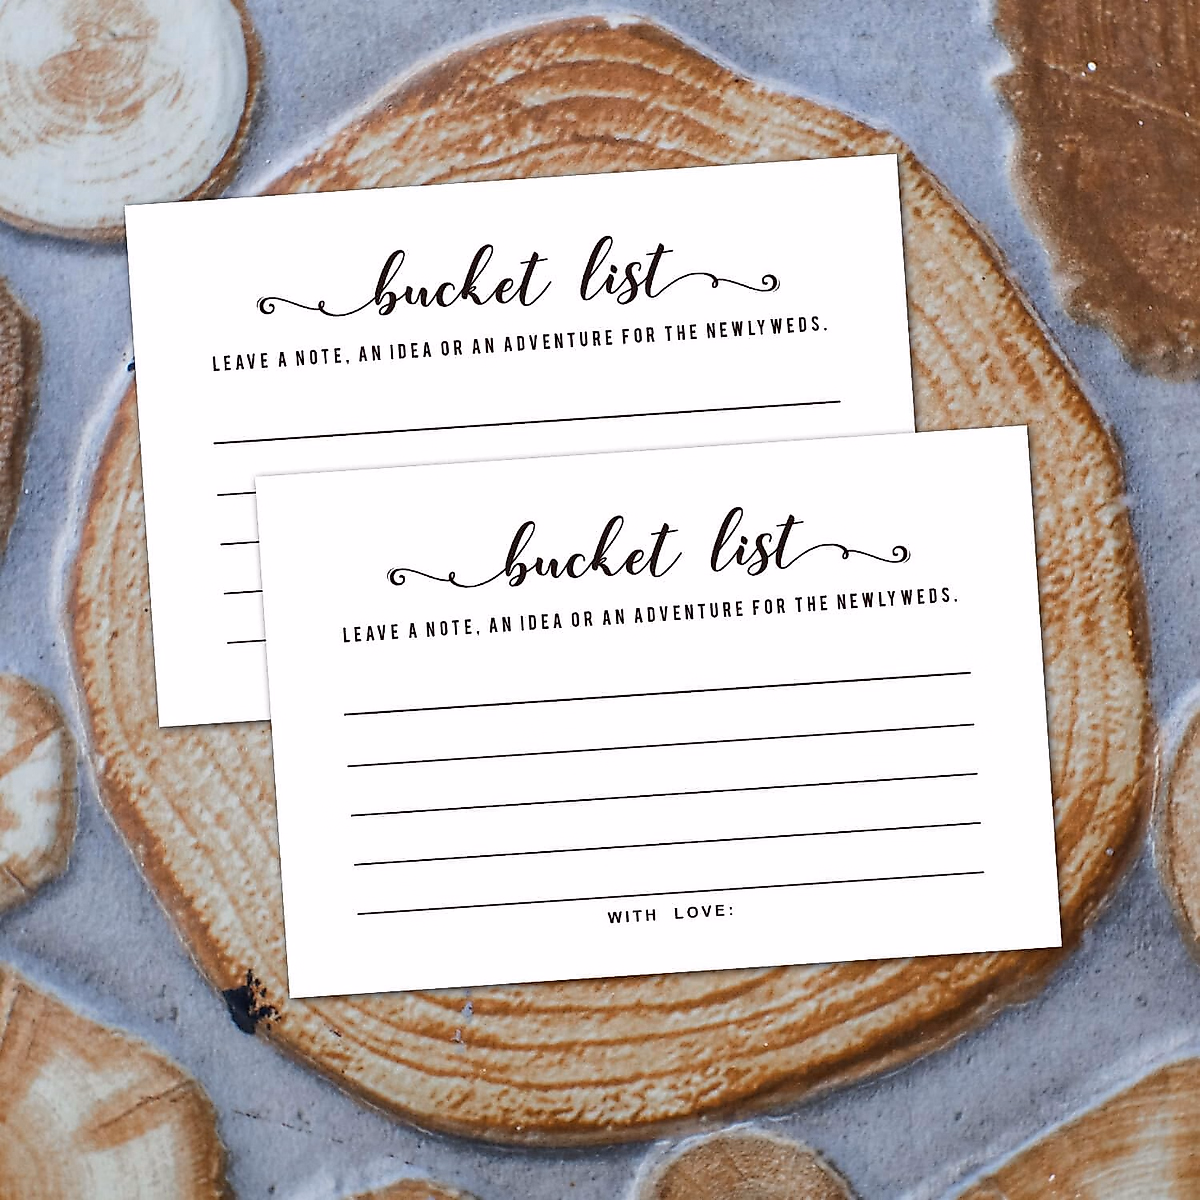 bucket list
LEAVE A NOTE, AN IDEA OR AN ADVENTURE FOR THE NEWLYWEDS.
bucket list
LEAVE A NOTE, AN IDEA OR AN ADVENTURE FOR THE NEWLYWEDS.
WITH LOVE: